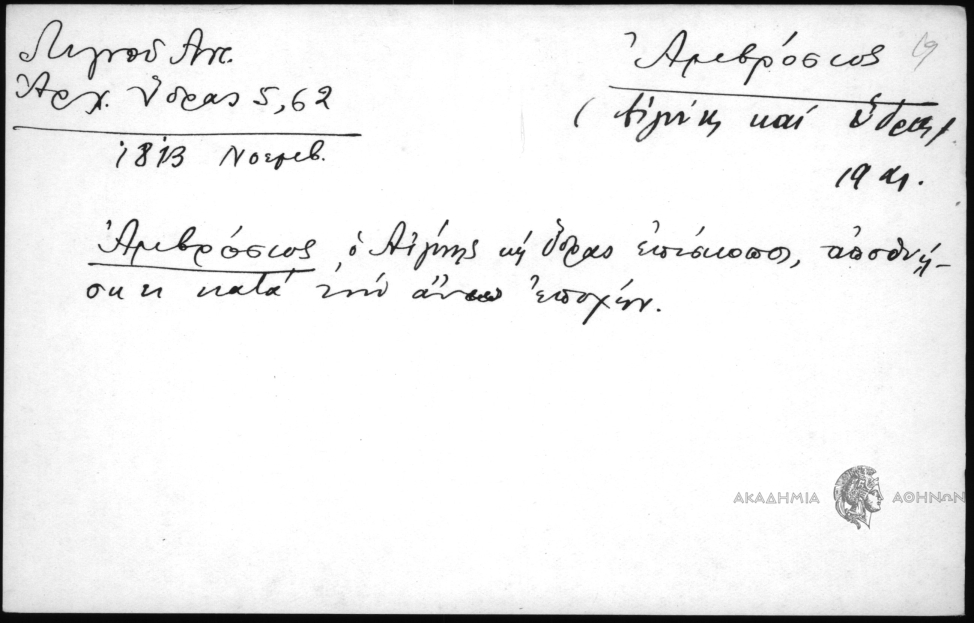 Λιγνού Αντ.
Ἀρχ. Ὕδρας 5, 62
1813 Νοεμβ.
Ἀμβρόσιος
19
(Αἰγίνης καί Ὕδρας)
19 αι.
Ἀμβρόσιος ὁ Αἰγίνης κ ὕδρας ἐπίσκοπος, ἀποθνή-
σκει κατά τήν ἄνω ἐποχήν.
ΑΚΑΔΗΜΙΑ ΑΘΗΝΩΝ